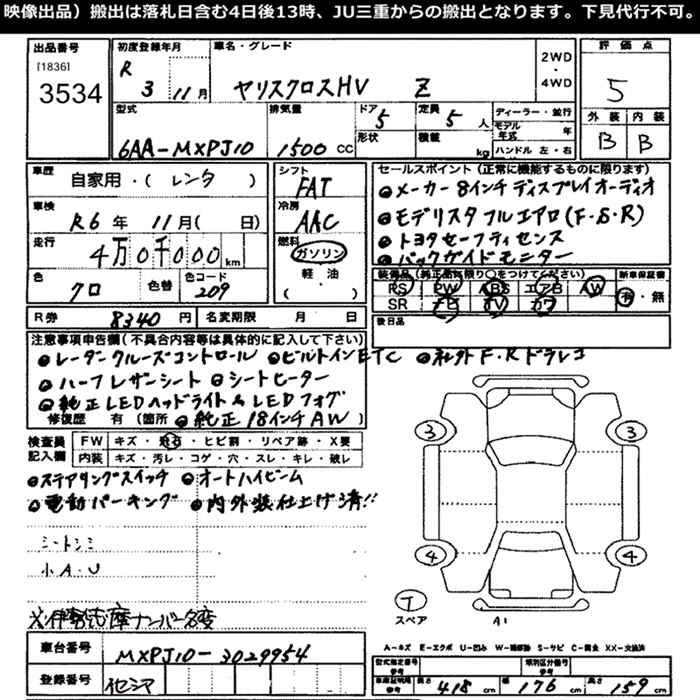 映像出品）搬出は落札日含む4日後13時、JU三重からの搬出となります。下見代行不可。
出品番号 初度登録年月 車名・グレード 2WD・4WD 評価点
[1836]
3534 R 3 11月 ヤリスクロスHV Z 5
型式 排気量 ドア 5 定員 5人 ディーラー・並行 外装 内装
6AA-MXPJ10 1500cc 形状 積載 kg モデル年式 年 B B
ハンドル 左・右
車歴 自家用・（レンタ） シフト FAT セールスポイント（正常に機能するものに限ります）
●メーカー8インチディスプレイオーディオ
車検 R6年 11月（ 日） 冷房 AAC ●モデリスタフルエアロ(F・S・R)
走行 4万0千000km 燃料 ガソリン ●トヨタセーフティセンス
●バックガイドモニター
色 クロ 色替 色コード 209 軽・油 装備品（純正品に限り○をつけてください） 新車保証書
PS PW ABS エアB AW 有・無
SR ナビ TV カワ
R券 8340円 名変期限 月 日 後日品
注意事項申告欄（不具合内容等は具体的に記入して下さい）
●レーダークルーズコントロール ●ビルトインETC ●社外F.Rドラレコ
●ハーフレザーシート ●シートヒーター
●純正LEDヘッドライト&LEDフォグ
修復歴 有（箇所 ●純正18インチAW）
検査員記入欄 FW キズ・飛石・ヒビ割・リペア跡・X要
内装 キズ・汚レ・コゲ・穴・スレ・キレ・破レ
●ステアリングスイッチ ●オートハイビーム
●電動パーキング ●内外装仕上げ済!!
3 3
シートシミ
小A.U
4 4
T スペア A1
※伊勢志摩ナンバー名変
A-キズ E-エクボ U-凹み W-補修跡 S-サビ C-腐食 XX-交換済
車台番号 MXPJ10-3029954
型式指定番号 類別区分番号
登録番号
車庫証明用参考 長さ 418cm 幅 176cm 高さ 159cm